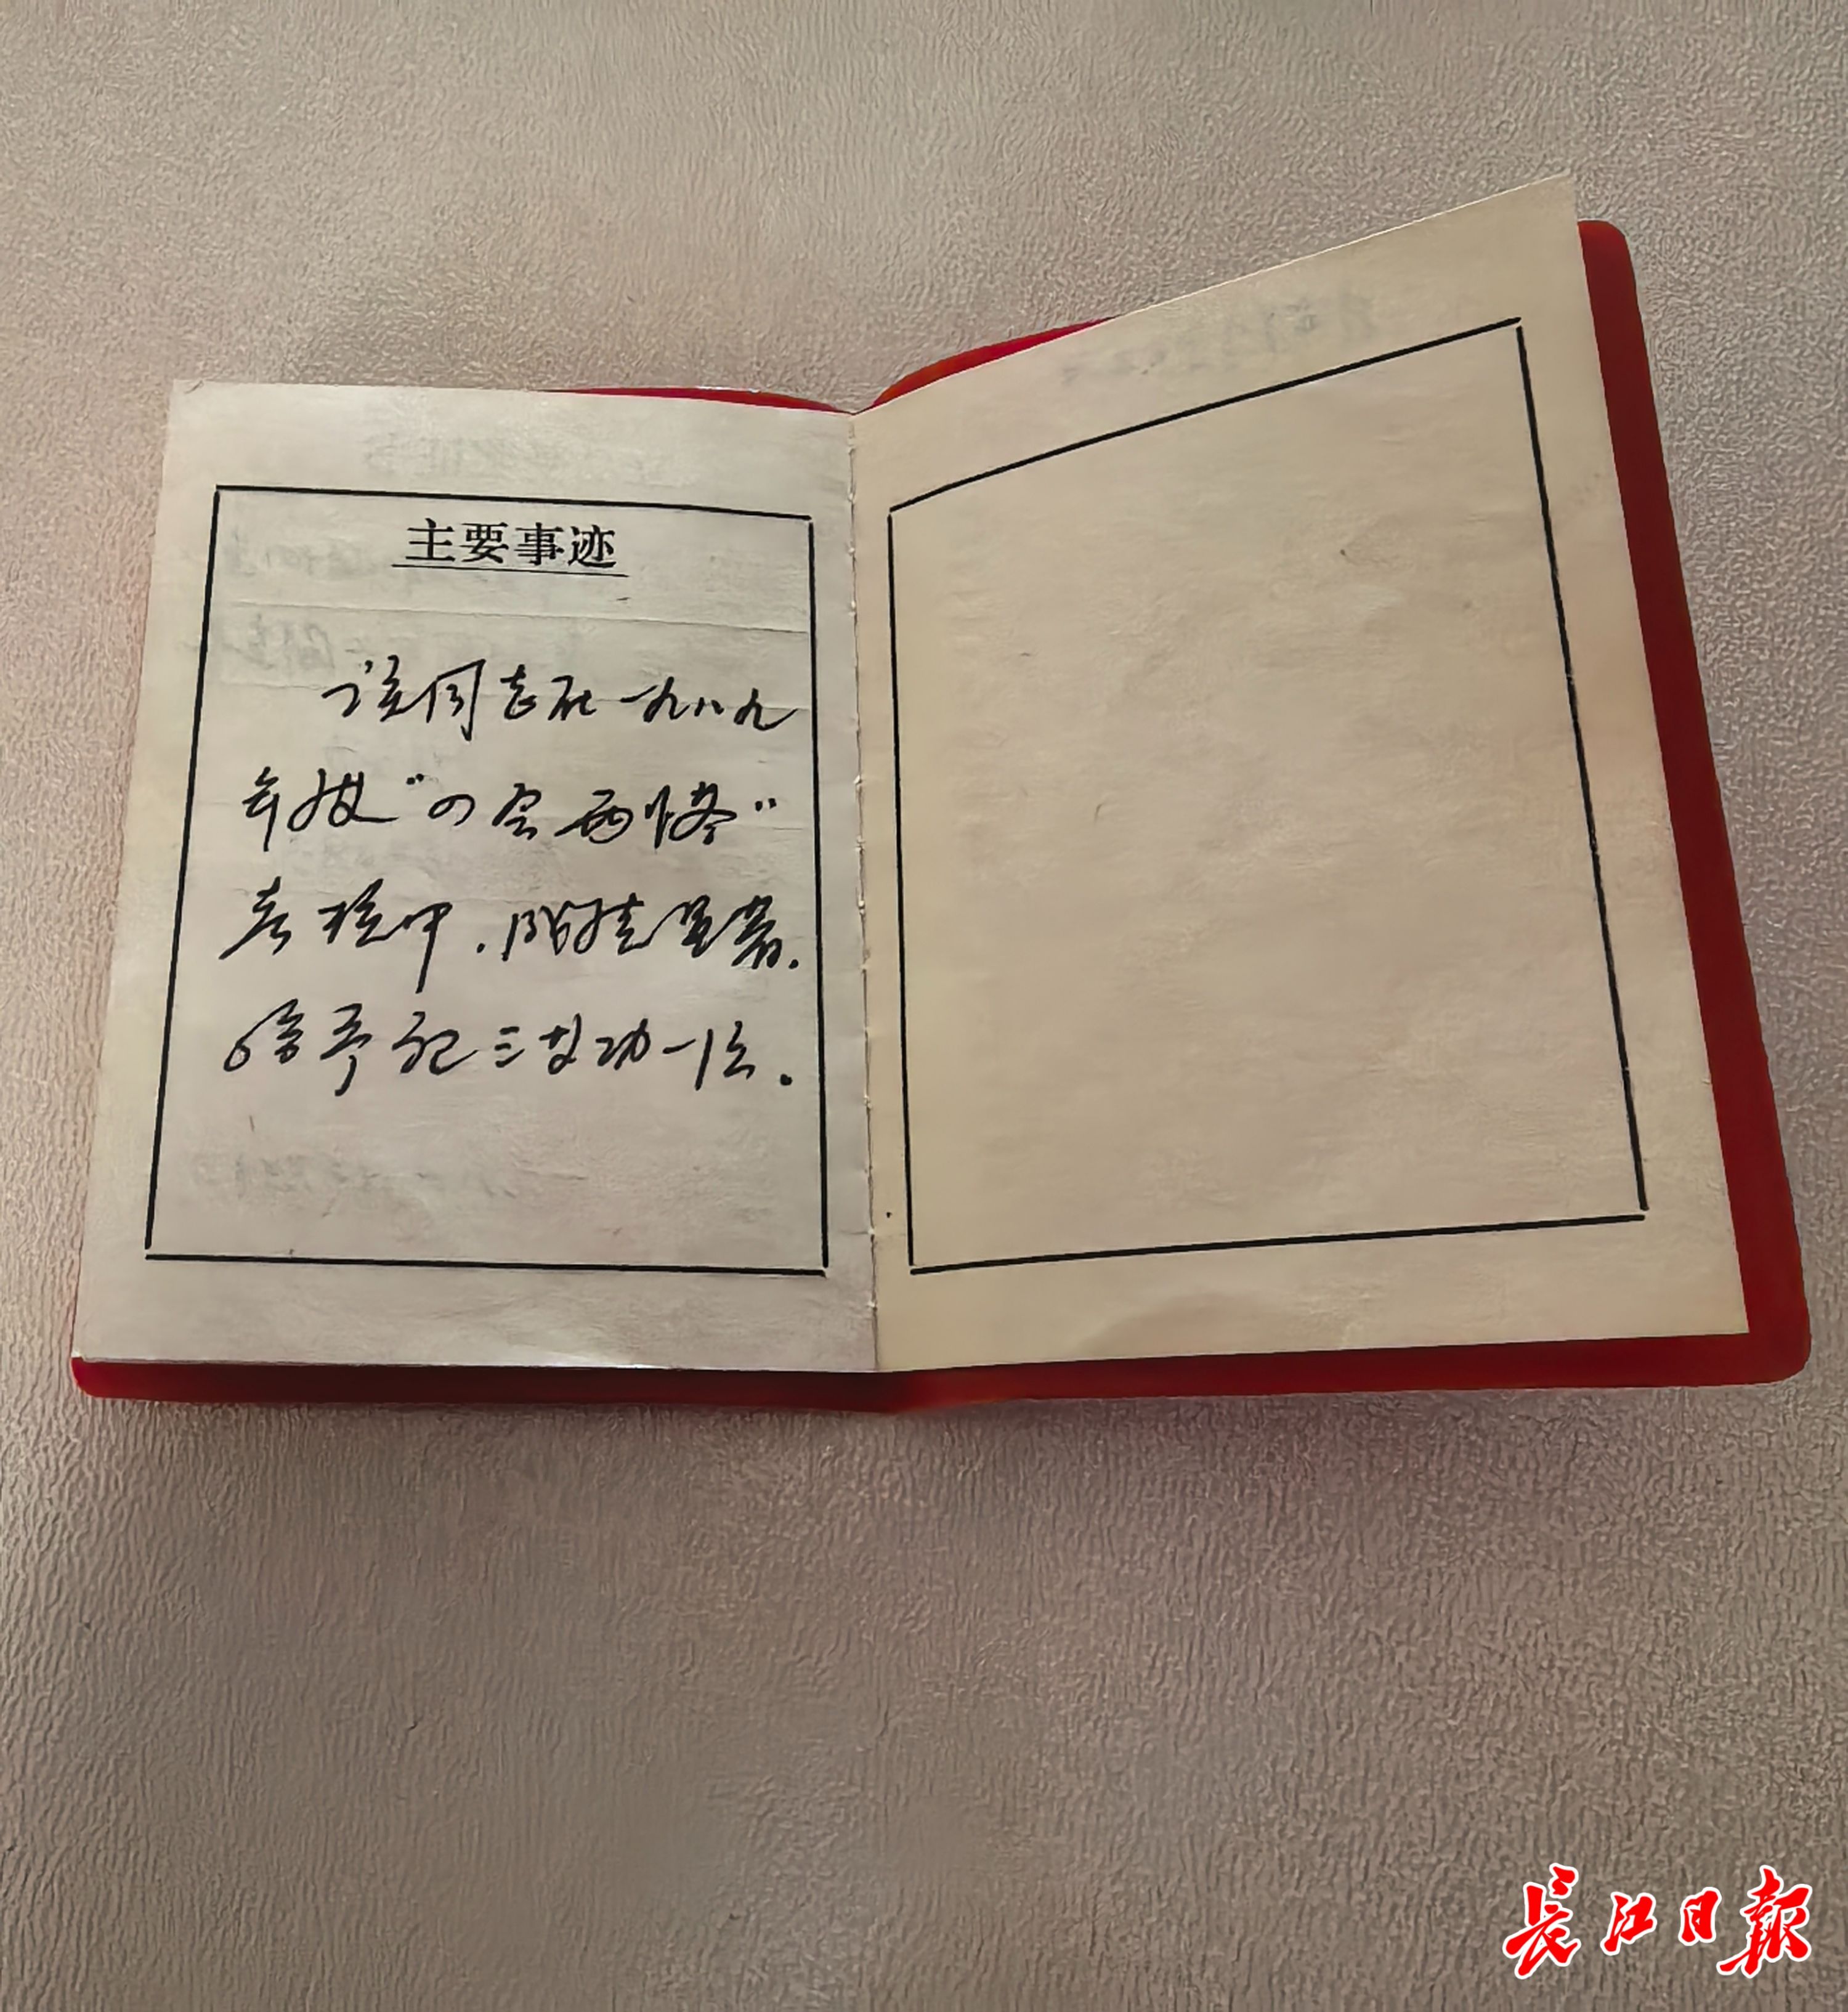 主要事迹
该同志在一九八九
年被“四会两悟”
考核中，成绩显著，
给予记三等功一次。
长江日报